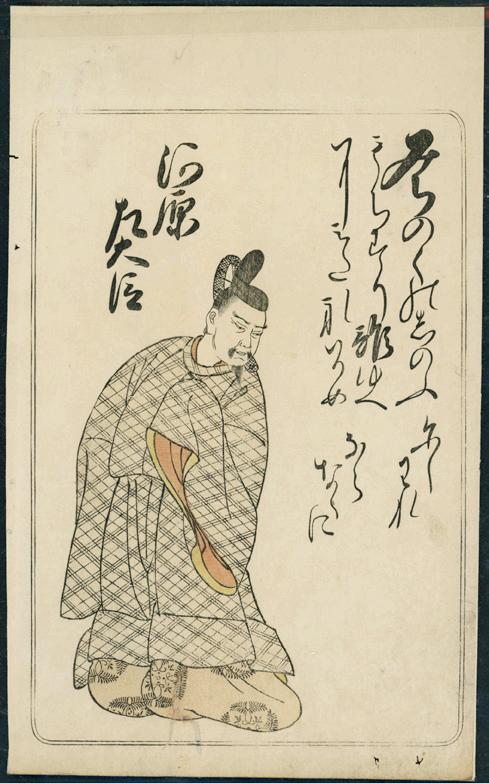 みちのくのしのふ
もちすり誰ゆへ
にみたれそめ
にし
われ
なら
なくに
河原
左大臣